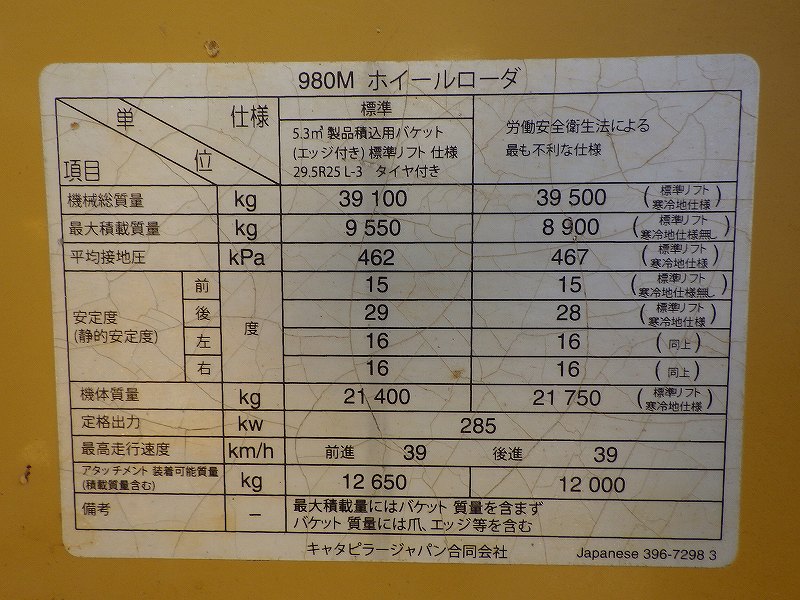 980M ホイールローダ
単位 仕様 項目
標準
5.3㎥ 製品積込用バケット
(エッジ付き) 標準リフト 仕様
29.5R25 L-3 タイヤ付き
労働安全衛生法による
最も不利な仕様
機械総質量 kg 39 100 39 500 (標準リフト 寒冷地仕様)
最大積載質量 kg 9 550 8 900 (標準リフト 寒冷地仕様無し)
平均接地圧 kPa 462 467 (標準リフト 寒冷地仕様)
安定度
(静的安定度)
度
前 15 15 (標準リフト 寒冷地仕様無し)
後 29 28 (標準リフト 寒冷地仕様)
左 16 16 (同上)
右 16 16 (同上)
機体質量 kg 21 400 21 750 (標準リフト 寒冷地仕様)
定格出力 kw 285
最高走行速度 km/h 前進 39 後進 39
アタッチメント 装着可能質量
(積載質量含む) kg 12 650 12 000
備考 – 最大積載量にはバケット 質量を含まず
バケット 質量には爪、エッジ等を含む
キャタピラージャパン合同会社
Japanese 396-7298 3